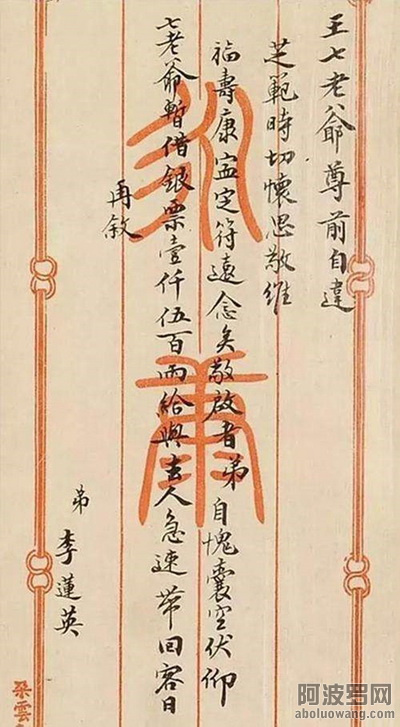 王七老爺尊前自違
芝範時切懷思敬維
福壽康寧定符遠念矣敬啟者弟自愧囊空伏仰
七老爺暫借銀票壹仟伍百兩給與去人急速帶回容日
再敘
弟 李蓮英
朵雲
阿波罗网
aboluowang.com